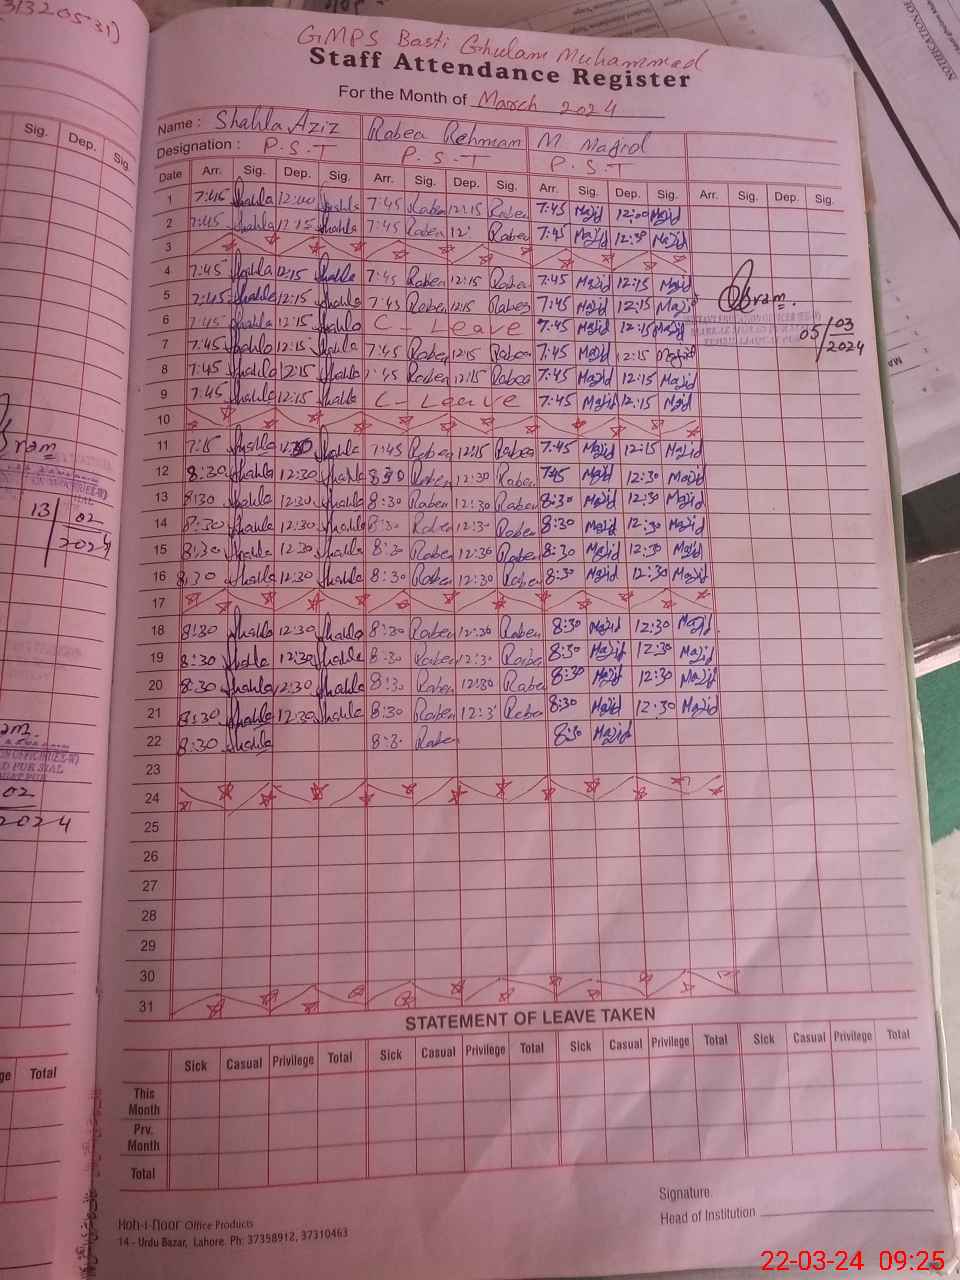 GMPS Basti Ghulam Muhammad
Staff Attendance Register
For the Month of March 2024
Name : Shahla Aziz Rabea Rehmam M Majid
Designation : P.S.T P.S.T P.S.T
Date Arr. Sig. Dep. Sig. Arr. Sig. Dep. Sig. Arr. Sig. Dep. Sig. Arr. Sig. Dep. Sig.
1 7:45 Shahla 12:00 Shahla 7:45 Raben 12:15 Raben 7:45 Majid 12:00 Majid
2 7:45 Shahla 12:15 Shahla 7:45 Raben 12: Raben 7:45 Majid 12:30 Majid
3
4 7:45 Shahla 12:15 Shahla 7:45 Raben 12:15 Raben 7:45 Majid 12:15 Majid
5 7:45 Shahla 12:15 Shahla 7:45 Raben 12:15 Raben 7:45 Majid 12:15 Majid
6 7:45 Shahla 12:15 Shahla C - Leave 7:45 Majid 12:15 Majid
7 7:45 Shahla 12:15 Shahla 7:45 Raben 12:15 Raben 7:45 Majid 12:15 Majid
8 7:45 Shahla 12:15 Shahla 7:45 Raben 12:15 Raben 7:45 Majid 12:15 Majid
9 7:45 Shahla 12:15 Shahla C - Leave 7:45 Majid 12:15 Majid
10
11 7:15 Shahla 12:30 Shahla 7:45 Raben 12:15 Raben 7:45 Majid 12:15 Majid
12 8:30 Shahla 12:30 Shahla 8:30 Raben 12:30 Raben 7:45 Majid 12:30 Majid
13 8:30 Shahla 12:30 Shahla 8:30 Raben 12:30 Raben 8:30 Majid 12:30 Majid
14 8:30 Shahla 12:30 Shahla 8:30 Raben 12:30 Raben 8:30 Majid 12:30 Majid
15 8:30 Shahla 12:30 Shahla 8:30 Raben 12:30 Raben 8:30 Majid 12:30 Majid
16 8:30 Shahla 12:30 Shahla 8:30 Raben 12:30 Raben 8:30 Majid 12:30 Majid
17
18 8:30 Shahla 12:30 Shahla 8:30 Raben 12:30 Raben 8:30 Majid 12:30 Majid
19 8:30 Shahla 12:30 Shahla 8:30 Raben 12:30 Raben 8:30 Majid 12:30 Majid
20 8:30 Shahla 12:30 Shahla 8:30 Raben 12:30 Raben 8:30 Majid 12:30 Majid
21 8:30 Shahla 12:30 Shahla 8:30 Raben 12:3 Raben 8:30 Majid 12:30 Majid
22 8:30 Shahla 8:3 Raben 8:30 Majid
23
24
25
26
27
28
29
30
31
05/03/2024
STATEMENT OF LEAVE TAKEN
Sick Casual Privilege Total Sick Casual Privilege Total Sick Casual Privilege Total Sick Casual Privilege Total
This Month
Prv. Month
Total
Signature
Head of Institution
Hoh-i-noor Office Products
14 - Urdu Bazar, Lahore. Ph: 37358912, 37310463
Sig. Dep. Sig.
13/02/2024
02
2024
Total
NOTIFICATION OF
22-03-24 09:25